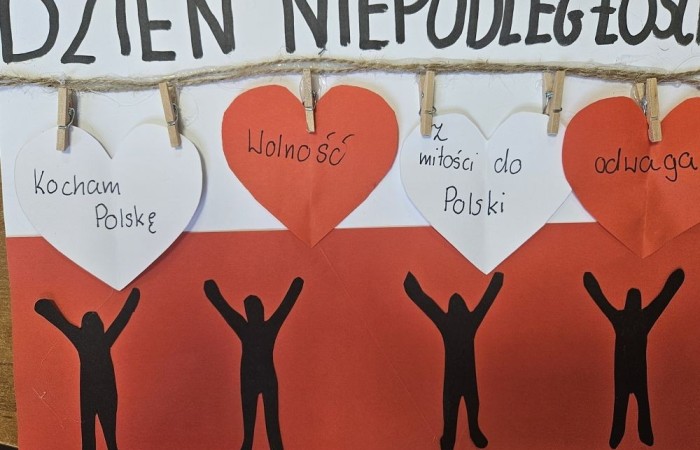 DZIEŃ NIEPODLEGŁOŚCI
Kocham
Polskę
Wolność
Z
miłości do
Polski
odwaga